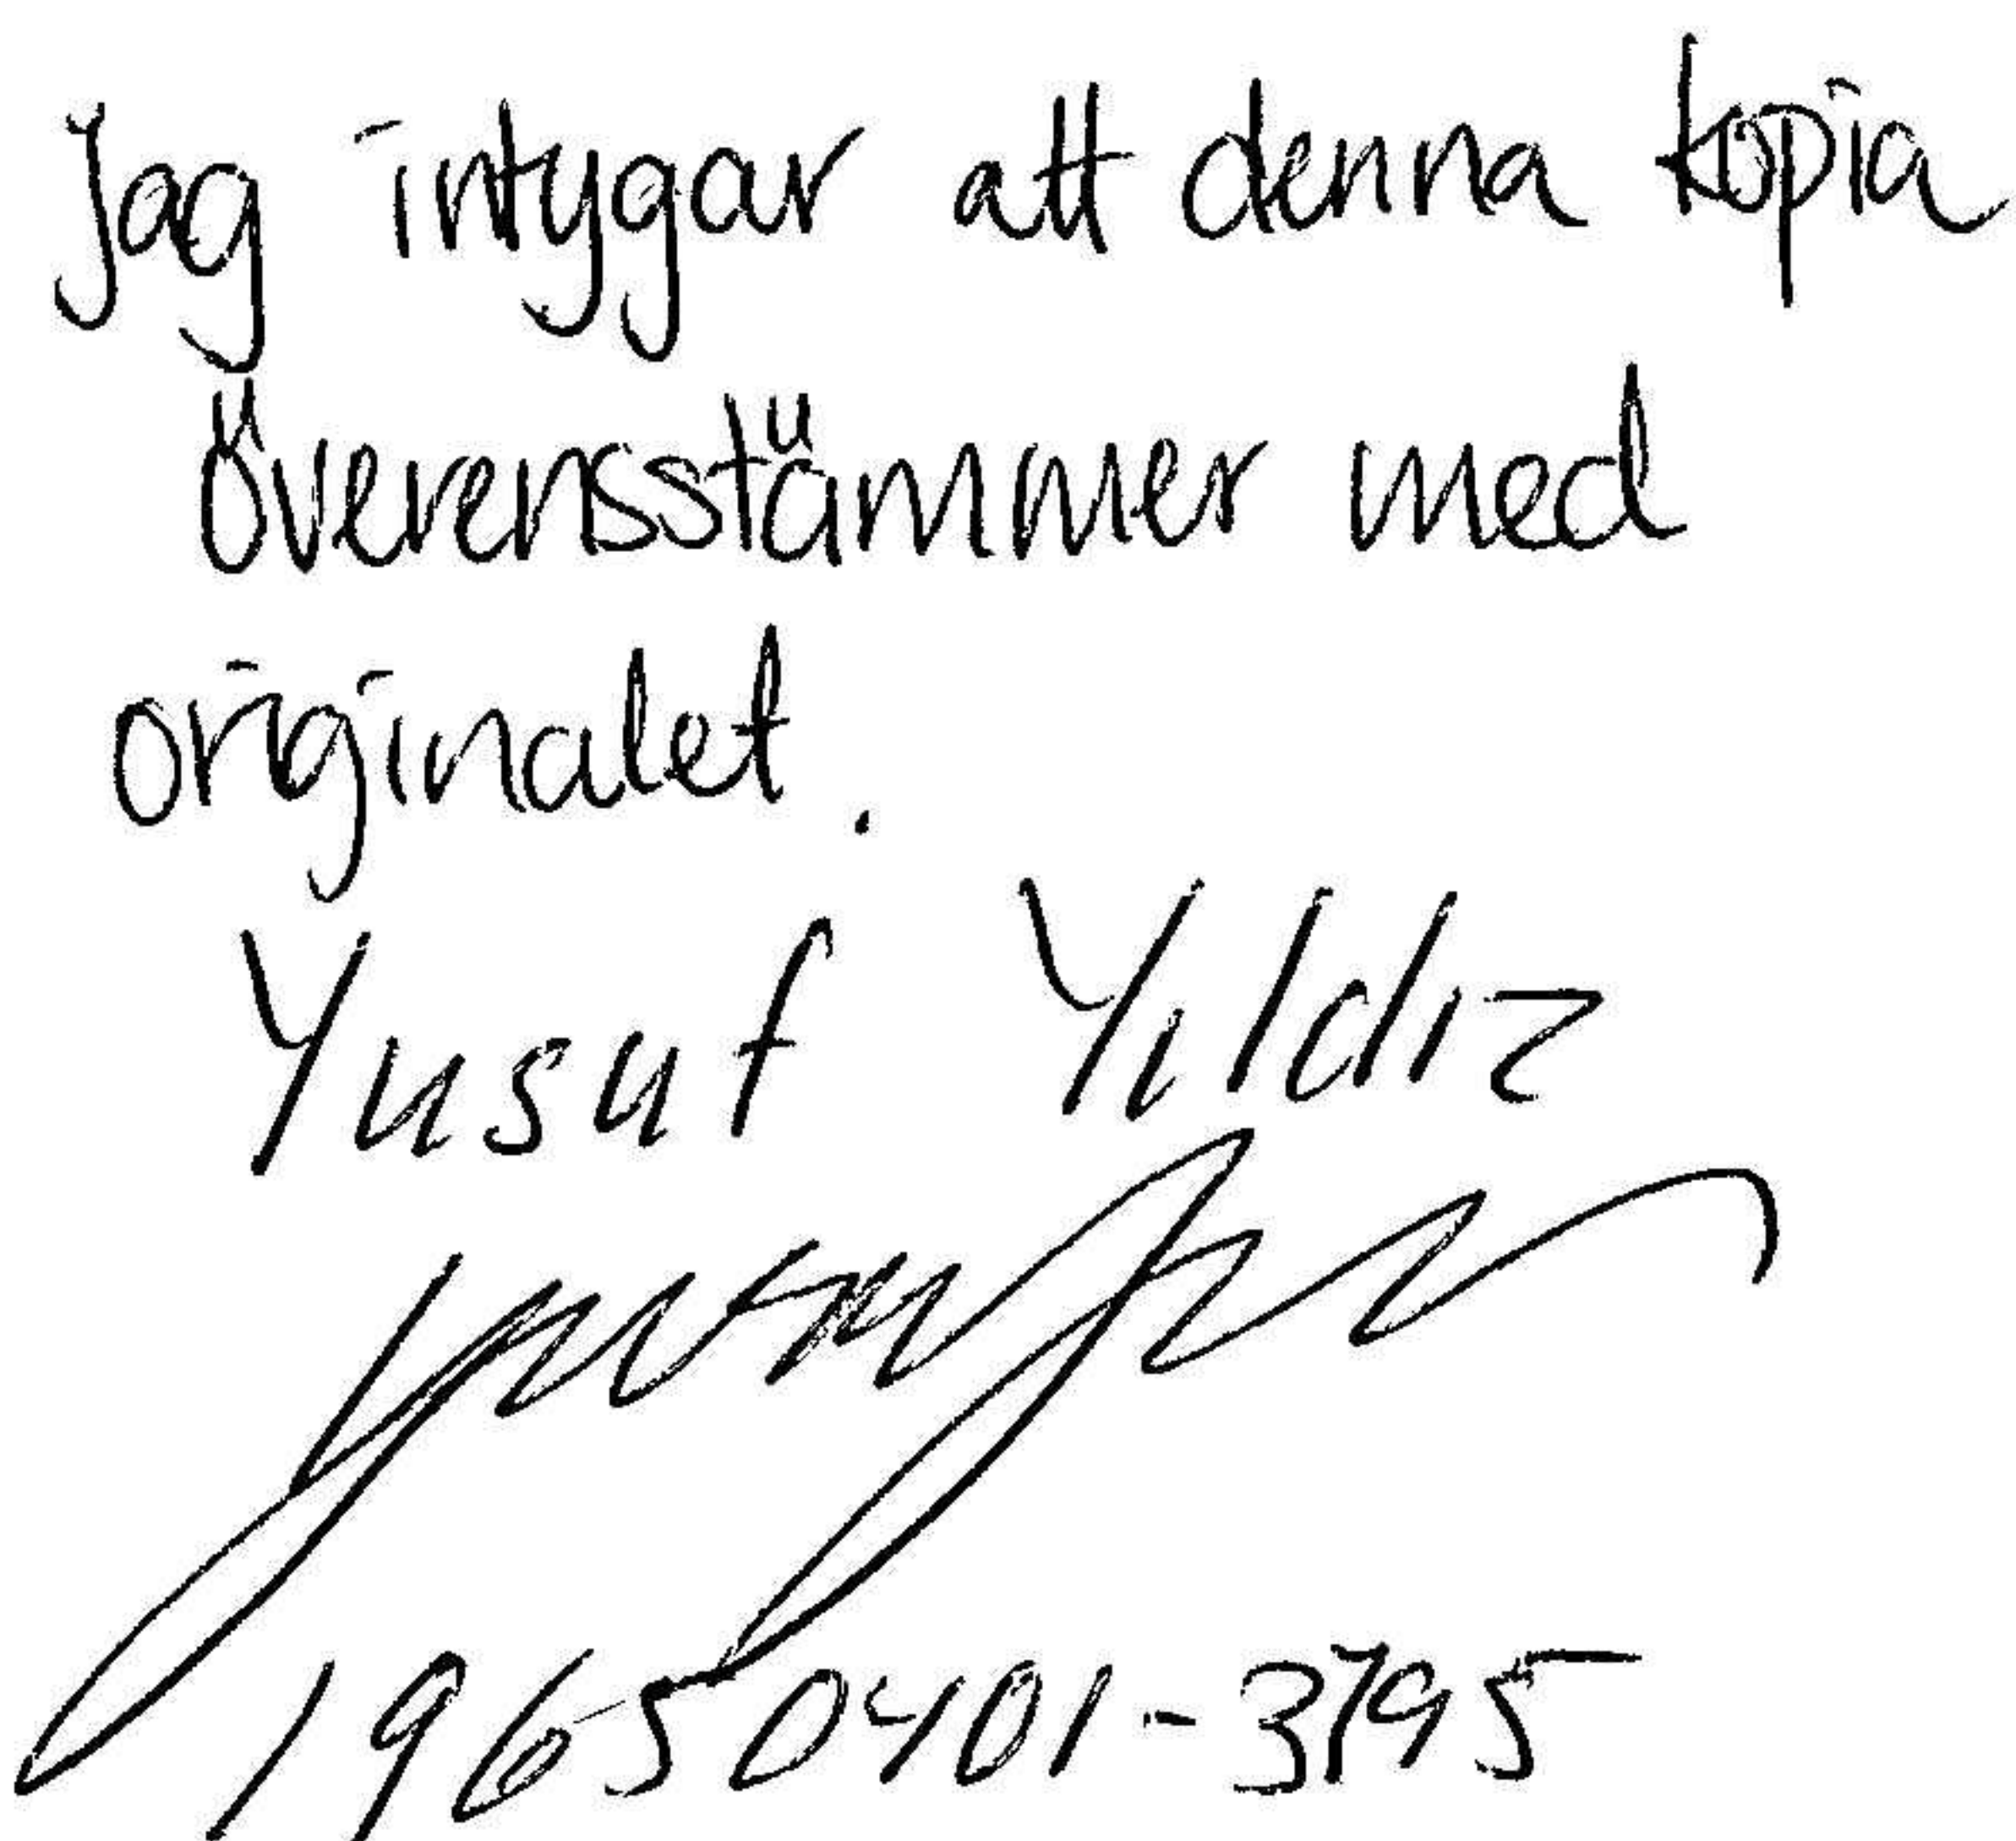 Jag intygar att denna kopia
överensstämmer med
originalet.
Yusuf Yıldız
19650401-3795